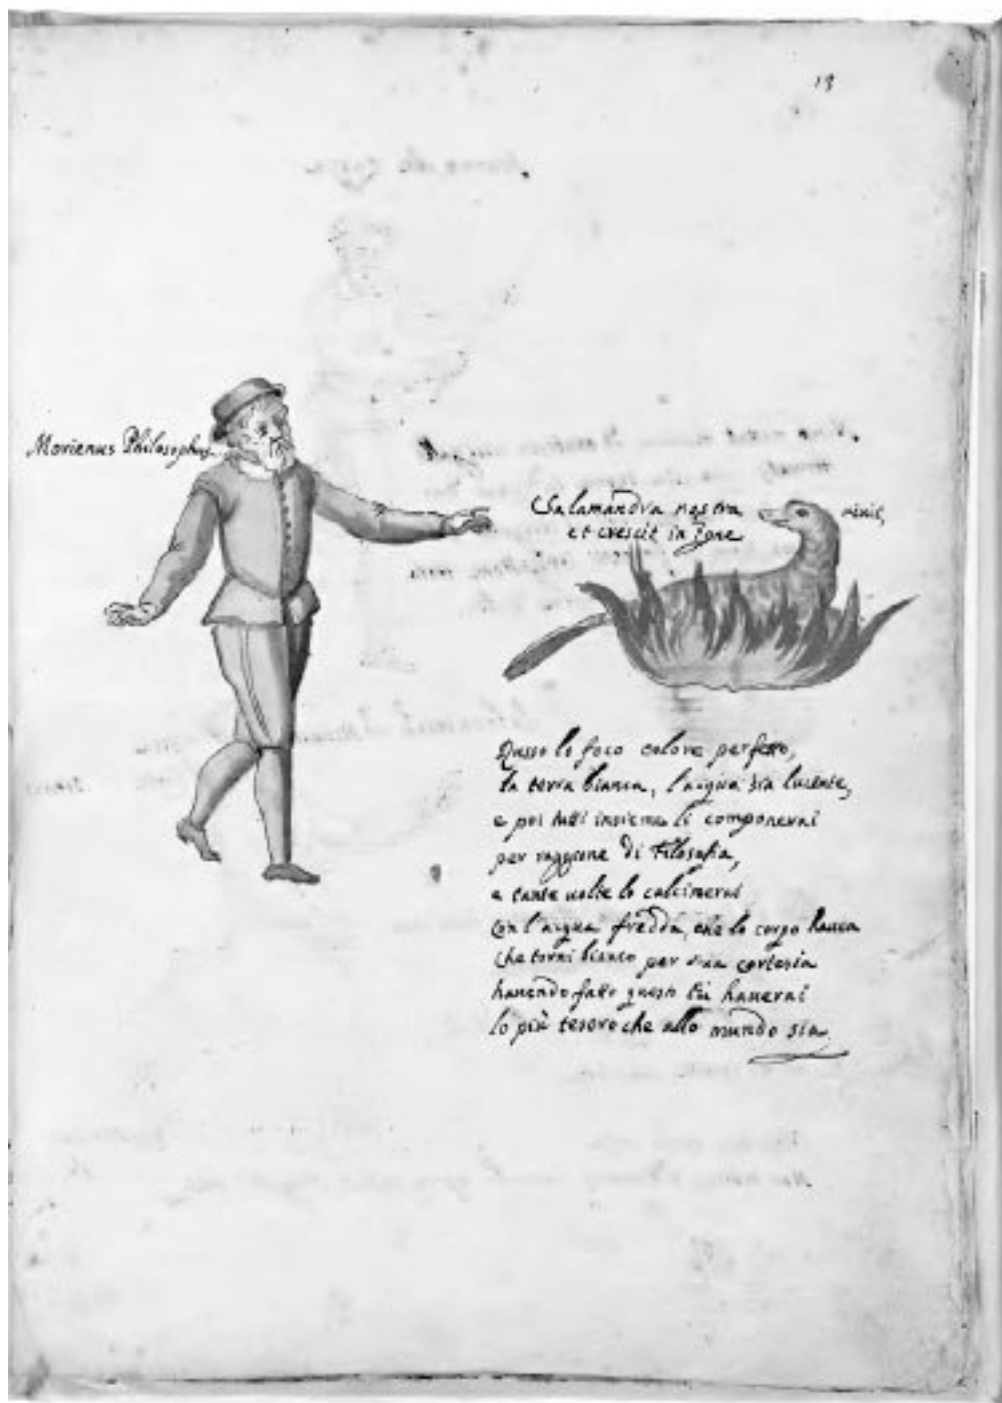 13
Morienus Philosophus
Salamandra nostra vivit,
et crescit in igne
lo foco colore perfetto,
la terra bianca, l'acqua sia lucente,
e poi tutti insieme li componerai
per raggione di Filosofia,
e tante volte lo calcinerai
con l'acqua fredda, che lo corpo
che torni bianco per sua cortesia
havendo fatto questo tu haverai
lo più tesoro che allo mundo sia